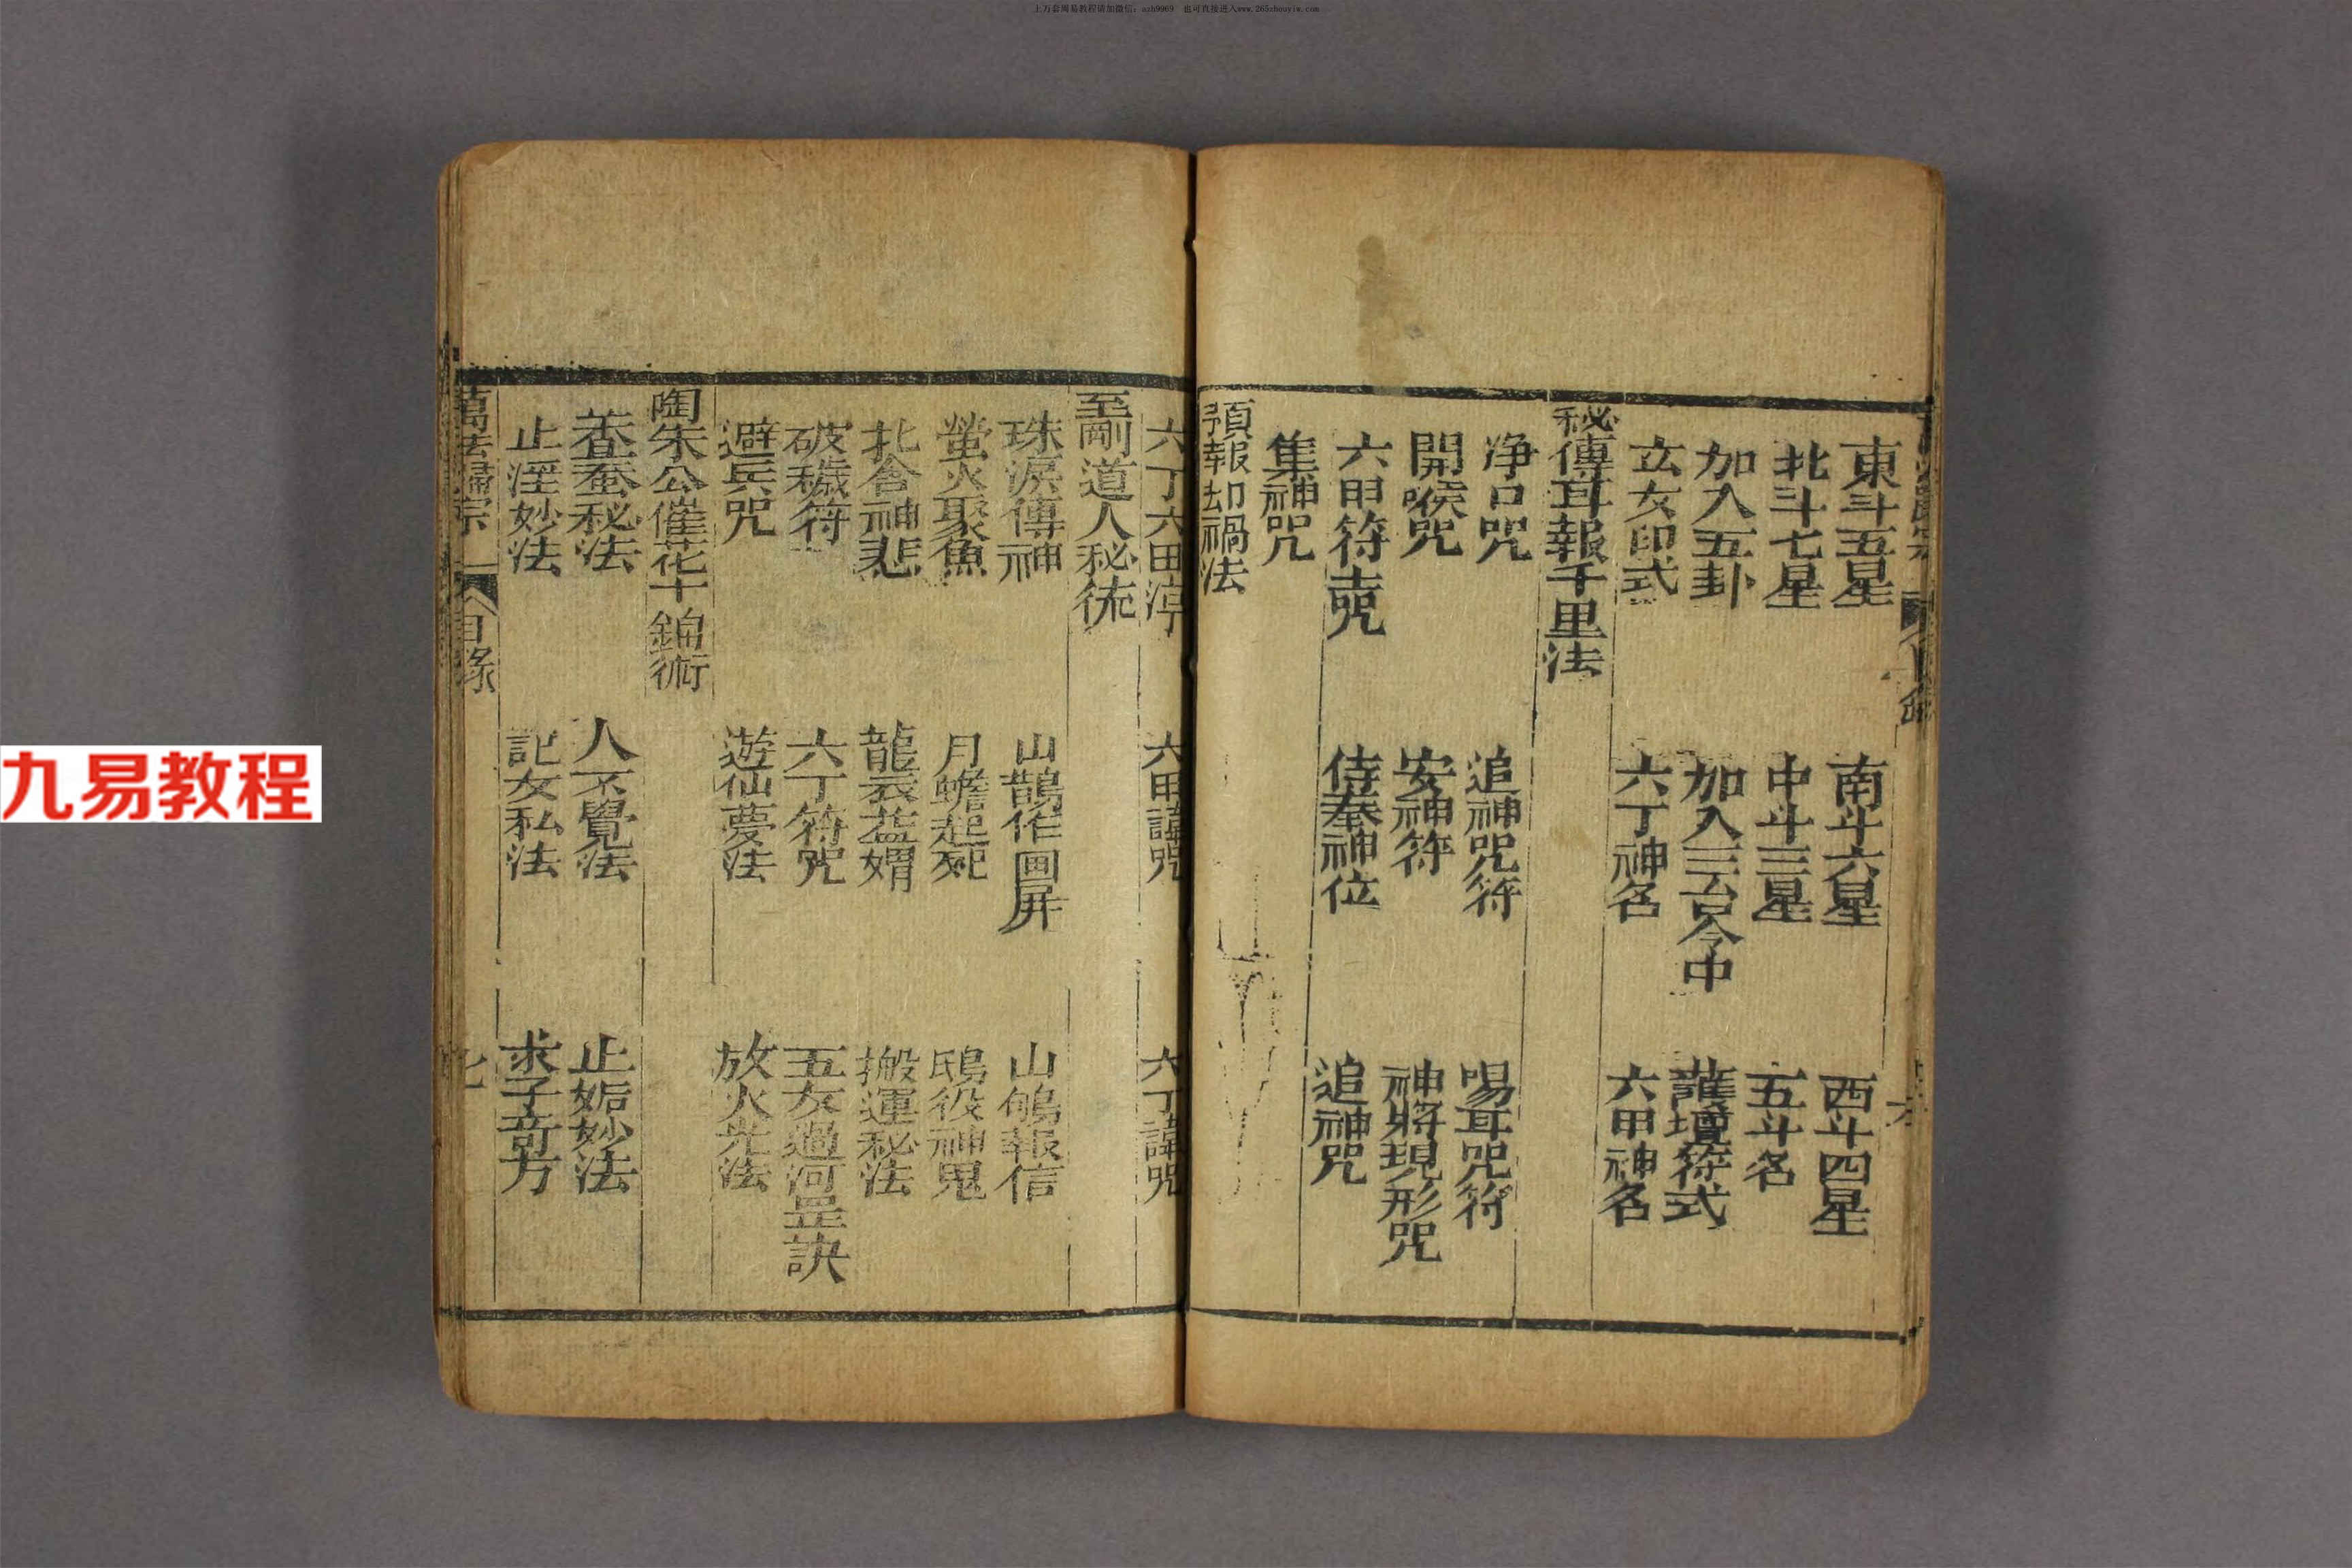 上万套周易教程请加微信：azh9969 也可直接进入www.265zhouyiw.com
九易教程
東斗五星 南斗六星 西斗四星
北斗七星 中斗三星 五斗名
加入五卦 加入三台令中 護壇符式
玄女印式 六丁神名 六甲神名
秘傳耳報千里法
净口咒 追神咒符 喝耳咒符
開喉咒 安神符 神將現形咒
六甲符咒 侍奉神位 追神咒
集神咒
預報却禍法
六丁六甲 六甲諱咒 六丁諱咒
至剛道人秘
珠淚傳神 山鵲作画屏 山鳩報信
螢火聚魚 月蟾起死 鴟役神鬼
北舍神悲 龍衣 搬運秘法
破穢符 六丁符咒 五女過河罡訣
避兵咒 遊仙夢法 放火光法
陶朱公催花十錦術
養蚕秘法 人不覺法 止妬妙法
止淫妙法 記女私法 求子竒方
萬法歸宗 一 目录 七